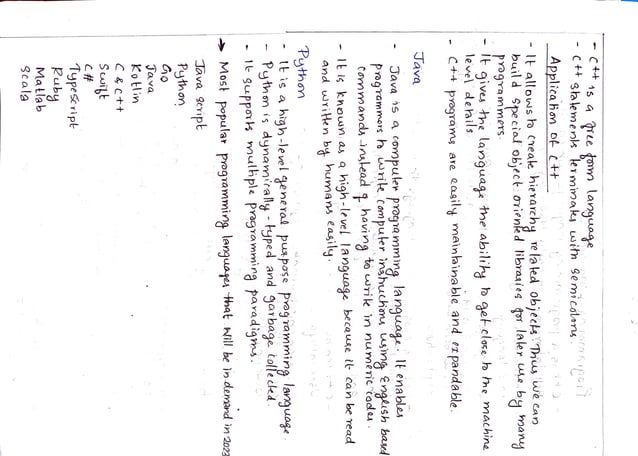 - C++ is a free form language
- C++ statements terminates with semicolons.
Application of C++
- It allows to create hierarchy related objects. Thus we can
build special object oriented libraries for later use by many
programmers.
- It gives the language the ability to get close to the machine
level details
- C++ programs are easily maintainable and expandable.
Java
- Java is a computer programming language. It enables
programmers to write computer instructions using English based
commands instead of having to write in numeric codes.
- It is known as a high-level language because it can be read
and written by humans easily.
Python
- It is a high-level general purpose programming language.
- Python is dynamically-typed and garbage collected.
- It supports multiple programming paradigms.
→ Most popular programming languages that will be in demand in 2023
Java script
Python
Go
Java
Kotlin
C & C++
Swift
C#
Typescript
Ruby
Matlab
Scala